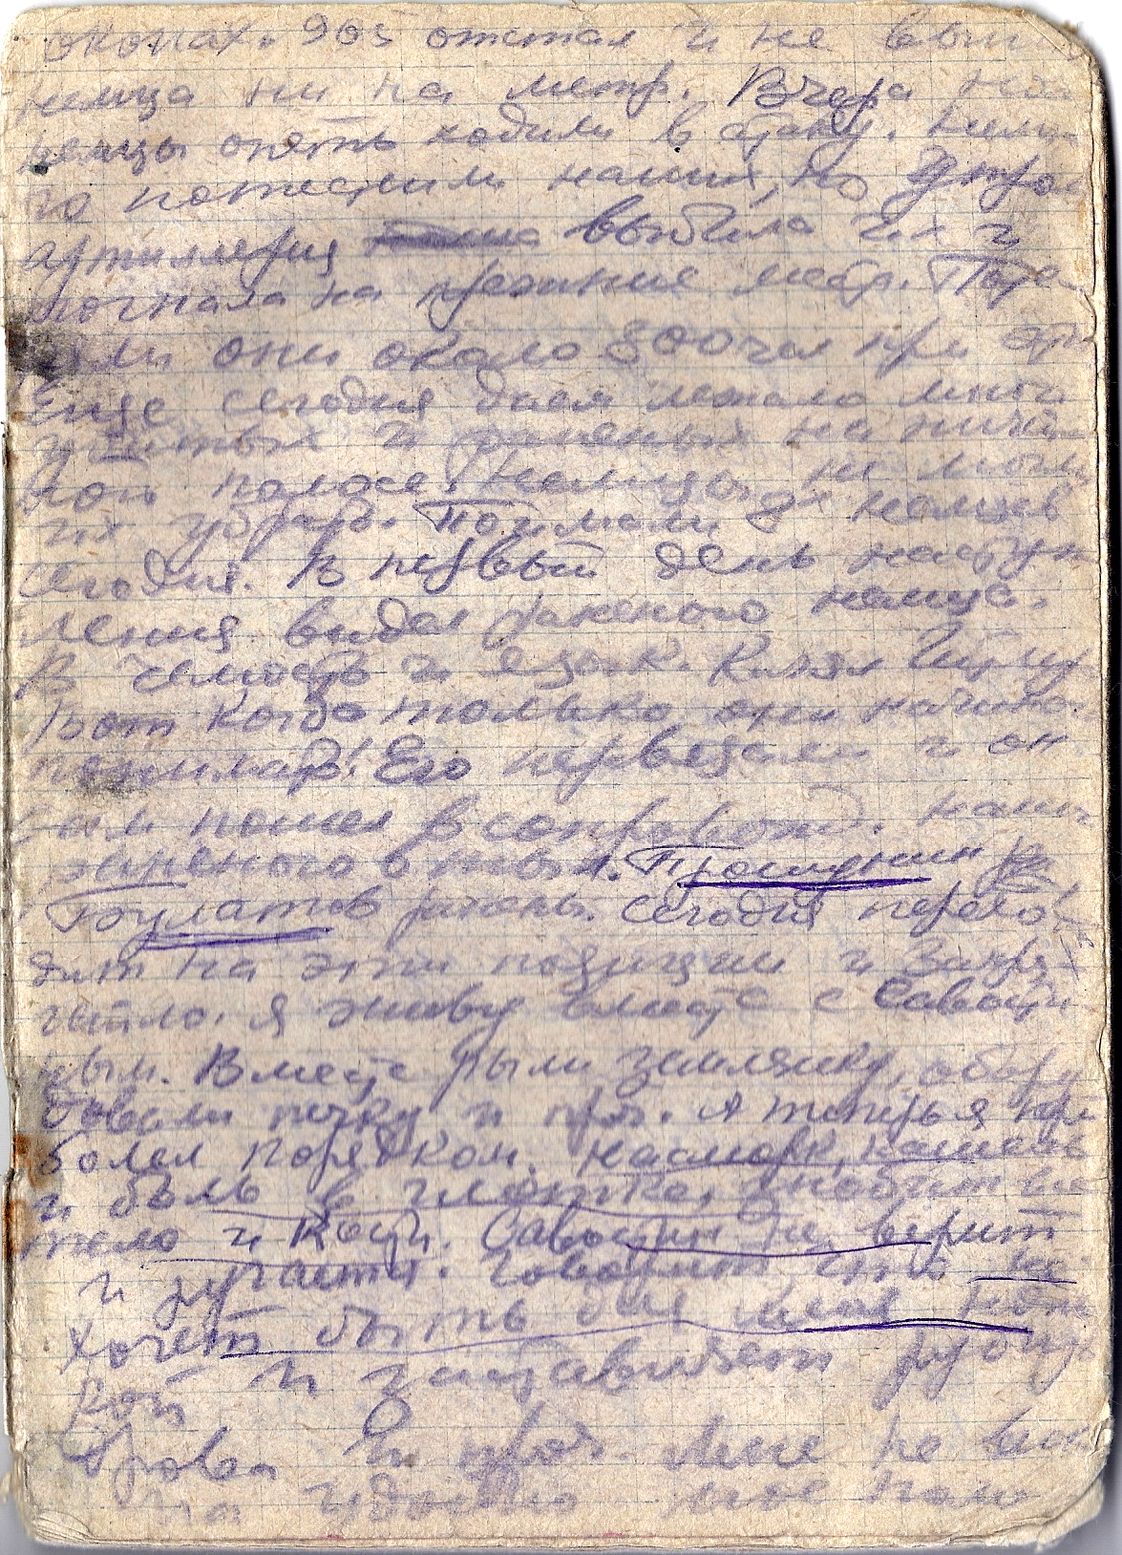 окопах. 903 отстал и не выби
немца ни на метр. Вчера
немцы опять ходили в атаку. Немно
го потеснили наших, но
артиллерия выбила их и
погнала на прежние места. Поте
ряли они около 800 чел при эт
Еще сегодня днем лежало много
убитых и раненых на ничей
ной полосе. Немцы не могли
их убрать. Поймали 8х немцев
сегодня. В первый день насту
пления видел раненого немца.
В челюсть и язык. Клял
вот когда только они начина
понимать! Его перевязали и он
сам пошел в сопровожд. наше
раненого в тыл. Прошунин и
Булатов ранены. Сегодня перехо
дит на эти позиции и
. Я живу вместе с Савости
ным. Вместе рыли землянку, обору
довали печку и проч. А теперь я при
болел порядком. Насморк, кашель
и боль в глотке, знобит все
тело и кости. Савостин не верит
и ругается. Говорит что не
хочет быть для меня
кой и заставляет
дрова и проч. Мне не
удобно мое